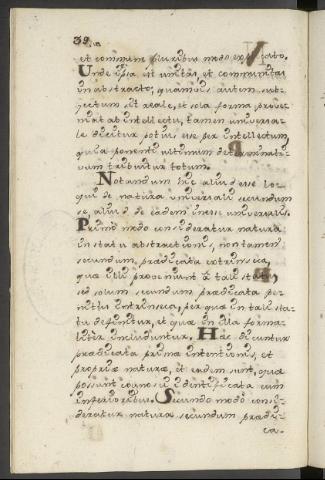 39
et commune pluribus modo explicato.
Unde ipsa sit unitas, et communitas
in abstracto, quamvis autem sub-
jectum sit reale, et sola forma prove-
niat ab intellectu, tamen universa-
le dicitur potius esse per intellectum,
quia ponenti ultimum determinati-
vum tribuitur totum.
Notandum hic aliud esse lo-
qui de natura universali secundum
se, aliud de eadem universali.
Primo modo consideratur natura
in statu abstractionis, non tamen
secundum praedicata extrinseca,
quae illi proveniunt a tali statu,
sed solum secundum praedicata pe-
nitus intrinseca, per quae in tali sta-
tu definitur, et quae in illa forma-
liter includuntur. Haec dicuntur
praedicata primae intentionis, et
propriae naturae, et eadem sunt, quae
possunt cognosci identificata cum
inferioribus. Secundo modo consi-
deratur natura secundum praedi-
ca-